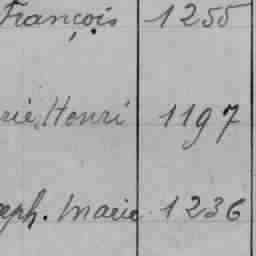 François 1255
rie Henri 1197
eph. Marie 1236